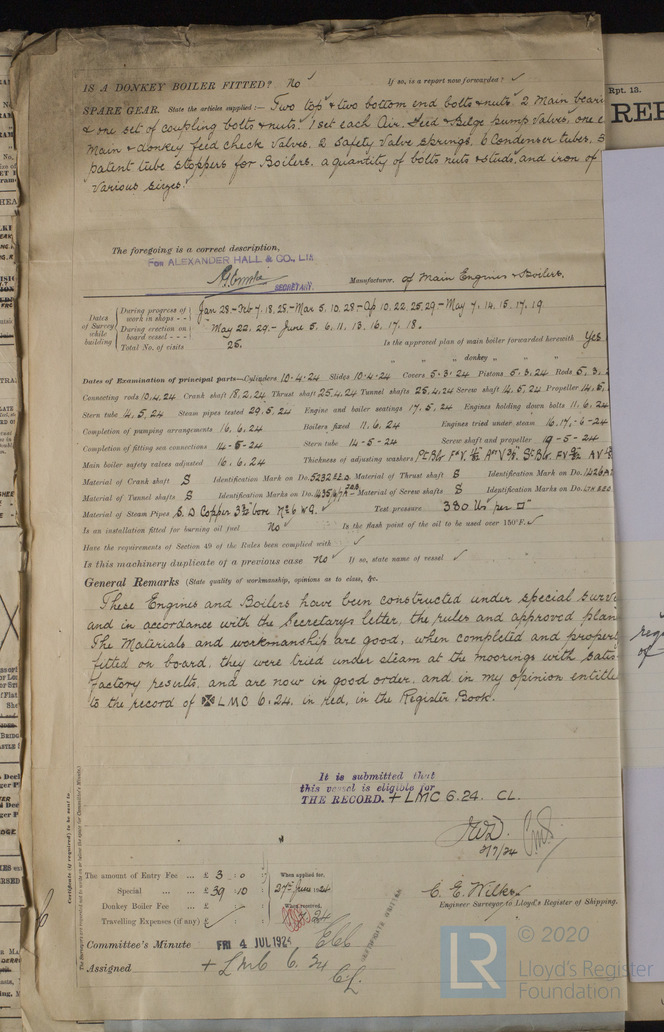 IS A DONKEY BOILER FITTED? No ✓ If so, is a report now forwarded? ✓
SPARE GEAR. State the articles supplied:— Two top & two bottom end bolts & nuts. 2 Main beari
& one set of coupling bolts & nuts. 1 set each Air, Feed & Bilge pump valves, one
Main & donkey feed check valves. 2 Safety Valve springs, 6 Condenser tubes, 5
patent tube stoppers for Boilers, a quantity of bolts nuts & studs, and iron of
various sizes.
The foregoing is a correct description,
FOR ALEXANDER HALL & CO., LTD
SECRETARY. Manufacturer. of Main Engines & Boilers.
Dates of Survey while building
During progress of work in shops - - Jan 28.- Feb 7. 18. 25.- Mar 5. 10. 28 - Ap 10. 22. 25. 29 - May 7. 14. 15. 17. 19
During erection on board vessel - - - May 22. 29.- June 5. 6. 11. 13. 16. 17. 18.
Total No. of visits 25. Is the approved plan of main boiler forwarded herewith Yes
" " " donkey "
Dates of Examination of principal parts—Cylinders 10.4.24 Slides 10.4.24 Covers 5.3.24 Pistons 5.3.24 Rods 5.3.
Connecting rods 10.4.24 Crank shaft 18.2.24 Thrust shaft 25.4.24 Tunnel shafts 25.4.24 Screw shaft 14.5.24 Propeller 14.5.
Stern tube 14.5.24 Steam pipes tested 29.5.24 Engine and boiler seatings 17.5.24 Engines holding down bolts 11.6.24
Completion of pumping arrangements 16.6.24 Boilers fixed 11.6.24 Engines tried under steam 16.17.-6-24
Completion of fitting sea connections 14-5-24 Stern tube 14-5-24 Screw shaft and propeller 19-5-24
Main boiler safety valves adjusted 16.6.24 Thickness of adjusting washers
Material of Crank shaft S Identification Mark on Do. Material of Thrust shaft S Identification Mark on Do.
Material of Tunnel shafts S Identification Marks on Do. Material of Screw shafts S Identification Marks on Do.
Material of Steam Pipes S. D. Copper 3½ bore No 6 W.G. ✓ Test pressure 380 lbs per □"
Is an installation fitted for burning oil fuel No ✓ Is the flash point of the oil to be used over 150°F. ✓
Have the requirements of Section 49 of the Rules been complied with ✓
Is this machinery duplicate of a previous case No ✓ If so, state name of vessel ✓
General Remarks (State quality of workmanship, opinions as to class, &c.
These Engines and Boilers have been constructed under special surve
and in accordance with the Secretarys letter, the rules and approved plan
The Materials and workmanship are good, when completed and properl
fitted on board, they were tried under steam at the moorings with satis
factory results, and are now in good order, and in my opinion entitle
to the record of ✠ LMC 6.24. in red, in the Register Book.
It is submitted that
this vessel is eligible for
THE RECORD. + LMC 6.24. CL.
3/7/24
The amount of Entry Fee ... £ 3 : 0 :
Special ... ... £ 39 : 10 :
Donkey Boiler Fee ... £
Travelling Expenses (if any) £
When applied for,
27th June 1924
When received,
C. E. Wilkes
Engineer Surveyor to Lloyd's Register of Shipping.
Committee's Minute FRI 4 JUL 1924
Assigned + LMC 6.24
CL.
CERTIFICATE WRITTEN
Certificate (if required) to be sent to
Rpt. 13.
REP
LR © 2020
Lloyd's Register
Foundation